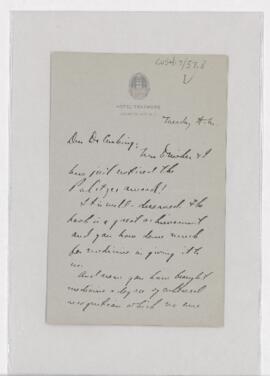 HOTEL TRAYMORE
Tuesday A.M.
Dear Dr Cushing:
Mrs & I
have just noticed the
Pulitzer award!
It is well-deserved & the
book is a great achievement
and you have done much
for medicine in giving it to
us.
And now you have brought
medicine a degree of cultural
recognition which no one